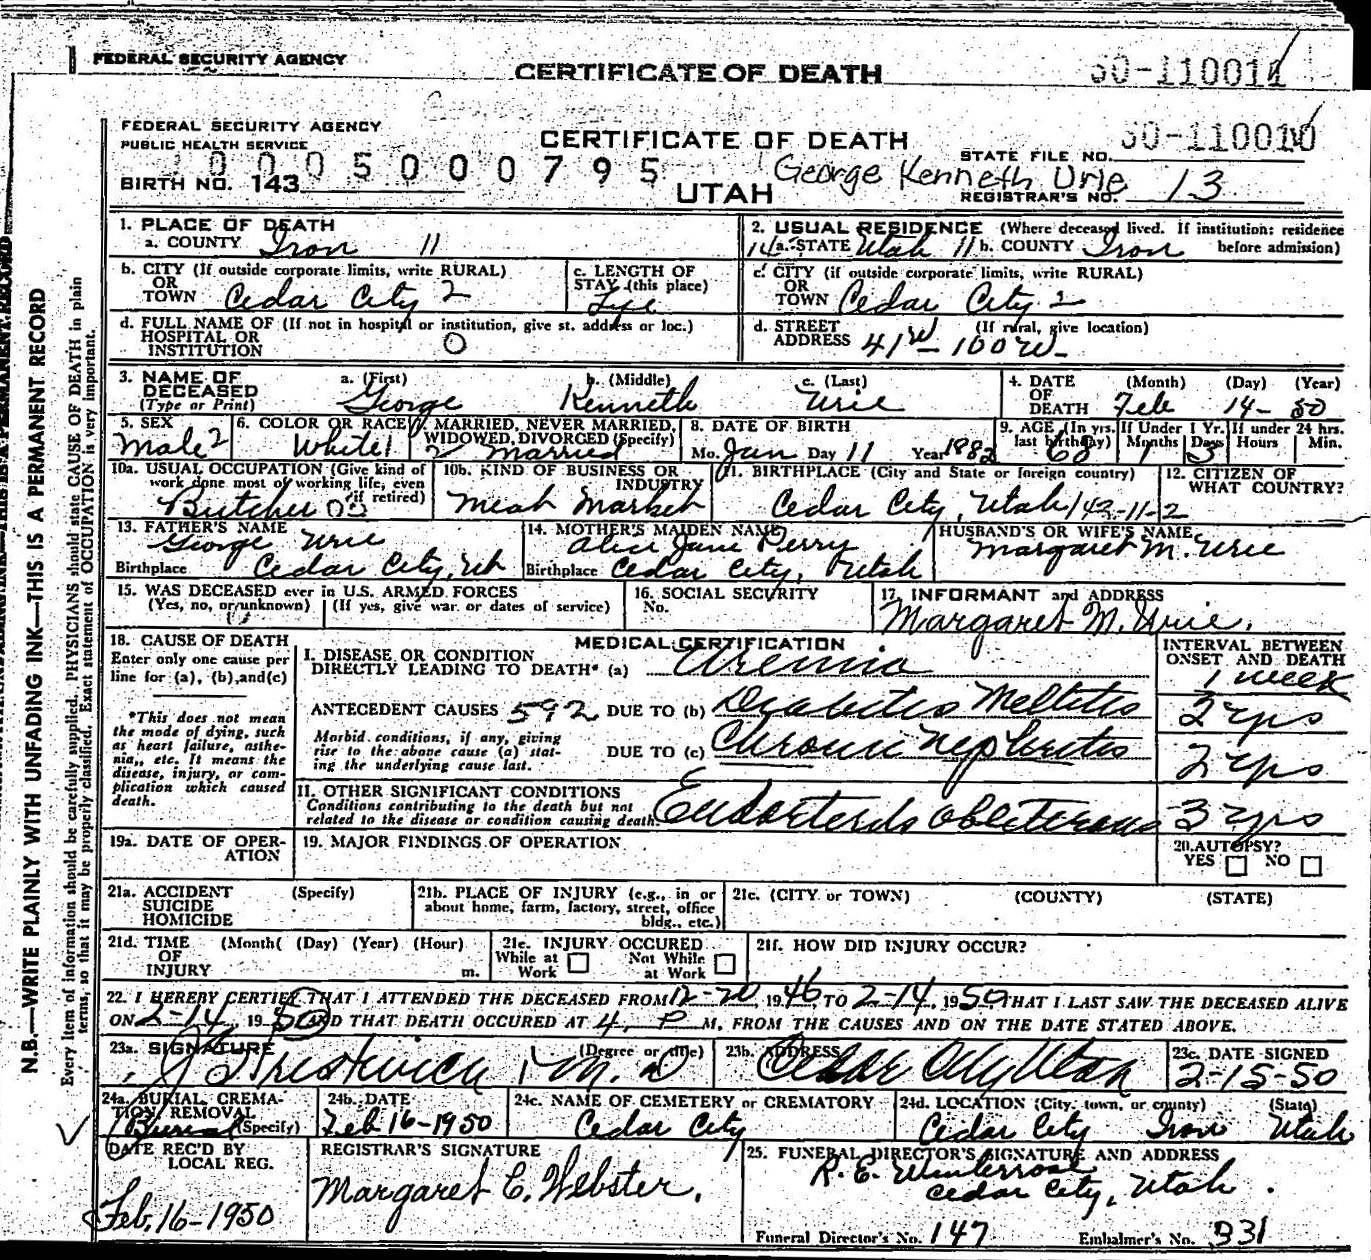 FEDERAL SECURITY AGENCY
CERTIFICATE OF DEATH
50-110011
FEDERAL SECURITY AGENCY
PUBLIC HEALTH SERVICE
CERTIFICATE OF DEATH
50-110010
STATE FILE NO.
0005000795
BIRTH NO. 143
UTAH
George Kenneth Urie
REGISTRAR'S NO. 13
1. PLACE OF DEATH
a. COUNTY Iron 11
2. USUAL RESIDENCE (Where deceased lived. If institution: residence before admission)
a. STATE Utah 11 b. COUNTY Iron
b. CITY (If outside corporate limits, write RURAL)
OR
TOWN Cedar City 2
c. LENGTH OF
STAY (this place)
Life
c. CITY (if outside corporate limits, write RURAL)
OR
TOWN Cedar City 2
d. FULL NAME OF (If not in hospital or institution, give st. address or loc.)
HOSPITAL OR
INSTITUTION 0
d. STREET (If rural, give location)
ADDRESS 41 W - 100 W -
3. NAME OF
DECEASED
(Type or Print)
a. (First) b. (Middle) c. (Last)
George Kenneth Urie
4. DATE (Month) (Day) (Year)
OF
DEATH Feb 14 - 50
5. SEX
Male 2
6. COLOR OR RACE
White 1
7. MARRIED, NEVER MARRIED,
WIDOWED, DIVORCED (Specify)
2 Married
8. DATE OF BIRTH
Mo. Jan Day 11 Year 1882
9. AGE (In yrs. last birthday) If Under 1 Yr. If under 24 hrs.
Months Days Hours Min.
68 1 3
10a. USUAL OCCUPATION (Give kind of
work done most of working life, even
if retired)
Butcher
10b. KIND OF BUSINESS OR
INDUSTRY
Meat Market
11. BIRTHPLACE (City and State or foreign country)
Cedar City, Utah 143-11-2
12. CITIZEN OF
WHAT COUNTRY?
13. FATHER'S NAME
George Urie
Birthplace Cedar City, Ut
14. MOTHER'S MAIDEN NAME
Alice Jane Perry
Birthplace Cedar City, Utah
HUSBAND'S OR WIFE'S NAME
Margaret M. Urie
15. WAS DECEASED ever in U.S. ARMED FORCES
(Yes, no, or unknown) (If yes, give war or dates of service)
16. SOCIAL SECURITY
No.
17. INFORMANT and ADDRESS
Margaret M. Urie.
18. CAUSE OF DEATH
Enter only one cause per
line for (a), (b), and (c)
*This does not mean
the mode of dying, such
as heart failure, asthe-
nia,, etc. It means the
disease, injury, or com-
plication which caused
death.
MEDICAL CERTIFICATION
I. DISEASE OR CONDITION
DIRECTLY LEADING TO DEATH* (a) Uremia
INTERVAL BETWEEN
ONSET AND DEATH
1 week
ANTECEDENT CAUSES 592 DUE TO (b) Diabetes Mellitis
Morbid conditions, if any, giving
rise to the above cause (a) stat-
ing the underlying cause last.
DUE TO (c) Chronic nephritis 2 yrs
II. OTHER SIGNIFICANT CONDITIONS
Conditions contributing to the death but not
related to the disease or condition causing death. 3 yrs
19a. DATE OF OPER-
ATION
19. MAJOR FINDINGS OF OPERATION
20. AUTOPSY?
YES NO
21a. ACCIDENT (Specify)
SUICIDE
HOMICIDE
21b. PLACE OF INJURY (e.g., in or
about home, farm, factory, street, office
bldg., etc.)
21c. (CITY or TOWN) (COUNTY) (STATE)
21d. TIME (Month( (Day) (Year) (Hour)
OF
INJURY m.
21e. INJURY OCCURED
While at Work Not While at Work
21f. HOW DID INJURY OCCUR?
22. I HEREBY CERTIFY THAT I ATTENDED THE DECEASED FROM 12-20, 1946 TO 2-14, 1950 THAT I LAST SAW THE DECEASED ALIVE
ON 2-14 1950 AND THAT DEATH OCCURED AT 4 P M, FROM THE CAUSES AND ON THE DATE STATED ABOVE.
23a. SIGNATURE (Degree or title)
Prestwich M.D
23b. ADDRESS
Cedar City Utah
23c. DATE SIGNED
2-15-50
24a. BURIAL, CREMA-
TION, REMOVAL
(Specify)
Burial
24b. DATE
Feb 16-1950
24c. NAME OF CEMETERY or CREMATORY
Cedar City
24d. LOCATION (City, town, or county) (State)
Cedar City Iron Utah
DATE REC'D BY
LOCAL REG.
Feb, 16-1950
REGISTRAR'S SIGNATURE
Margaret C. Webster.
25. FUNERAL DIRECTOR'S SIGNATURE AND ADDRESS
R. E. Winterrose
Cedar City, Utah.
Funeral Director's No. 147 Embalmer's No. 331
N.B.—WRITE PLAINLY WITH UNFADING INK—THIS IS A PERMANENT RECORD
Every item of information should be carefully supplied. PHYSICIANS should state CAUSE OF DEATH in plain
terms, so that it may be properly classified. Exact statement of OCCUPATION is very important.